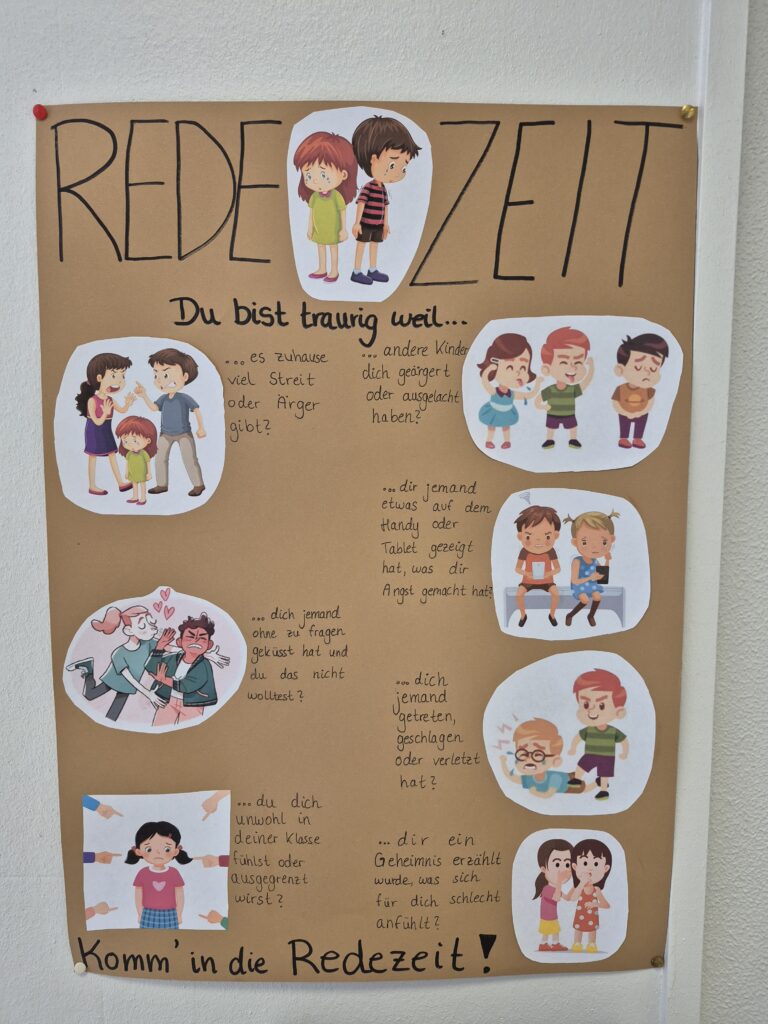 REDE ZEIT
Du bist traurig weil...
...es zuhause
viel Streit
oder Ärger
gibt?
...andere Kinder
dich geärgert
oder ausgelacht
haben?
...dir jemand
etwas auf dem
Handy oder
Tablet gezeigt
hat, was dir
Angst gemacht hat?
...dich jemand
ohne zu fragen
geküsst hat und
du das nicht
wolltest?
...dich
jemand
getreten,
geschlagen
oder verletzt
hat?
...du dich
unwohl in
deiner Klasse
fühlst oder
ausgegrenzt
wirst?
...dir ein
Geheimnis erzählt
wurde, was sich
für dich schlecht
anfühlt?
Komm' in die Redezeit!